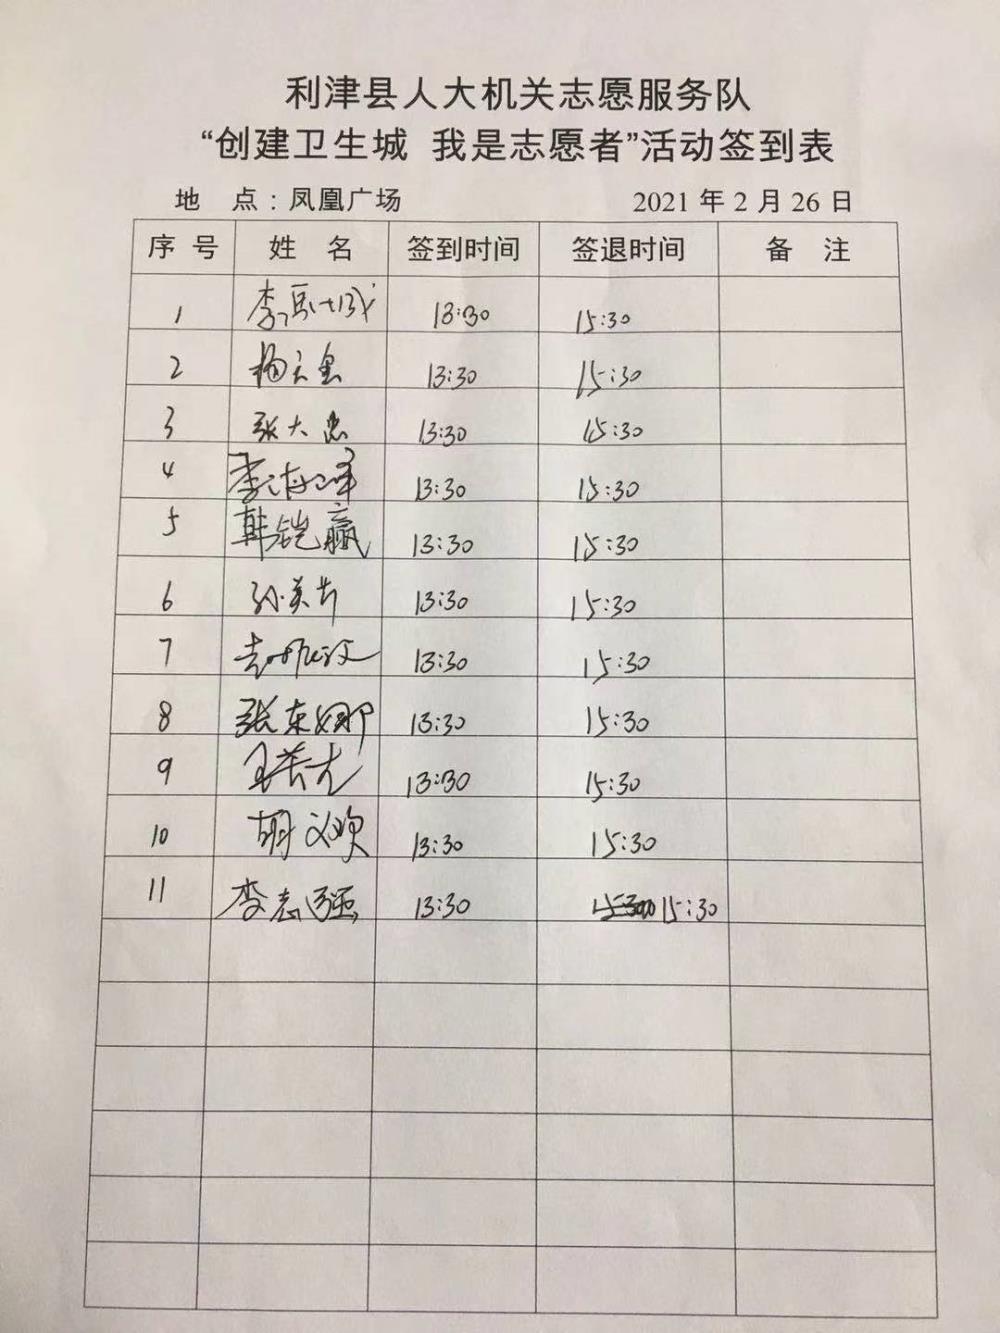 利津县人大机关志愿服务队
“创建卫生城 我是志愿者”活动签到表
地 点：凤凰广场 2021年2月26日
序 号 姓 名 签到时间 签退时间 备 注
1 13:30 15:30
2 13:30 15:30
3 张大忠 13:30 15:30
4 李海军 13:30 15:30
5 韩铠赢 13:30 15:30
6 13:30 15:30
7 13:30 15:30
8 张东娜 13:30 15:30
9 13:30 15:30
10 胡文欢 13:30 15:30
11 李志强 13:30 15:30